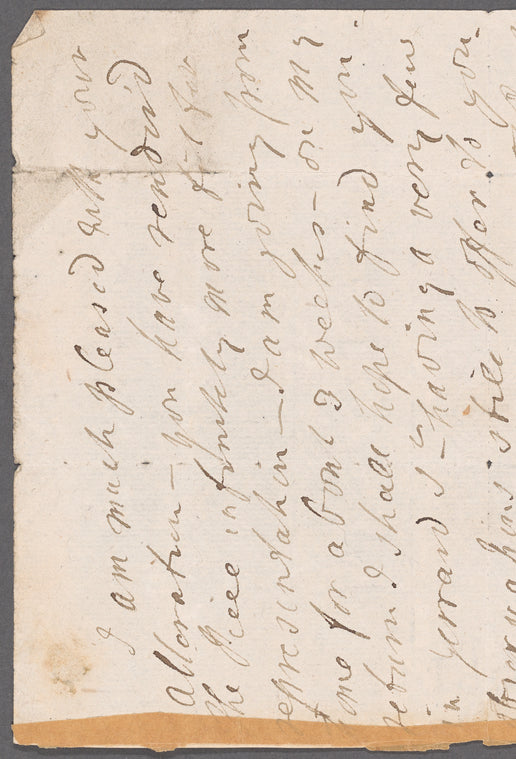 I am much pleased with your
alteration – you have render'd
the Piece infinitely more fit for
representation – I am going from
Tome for about 3 weeks – on my
return I shall hope to find you
in Gerrard St – having a very few
observations still to offer to you